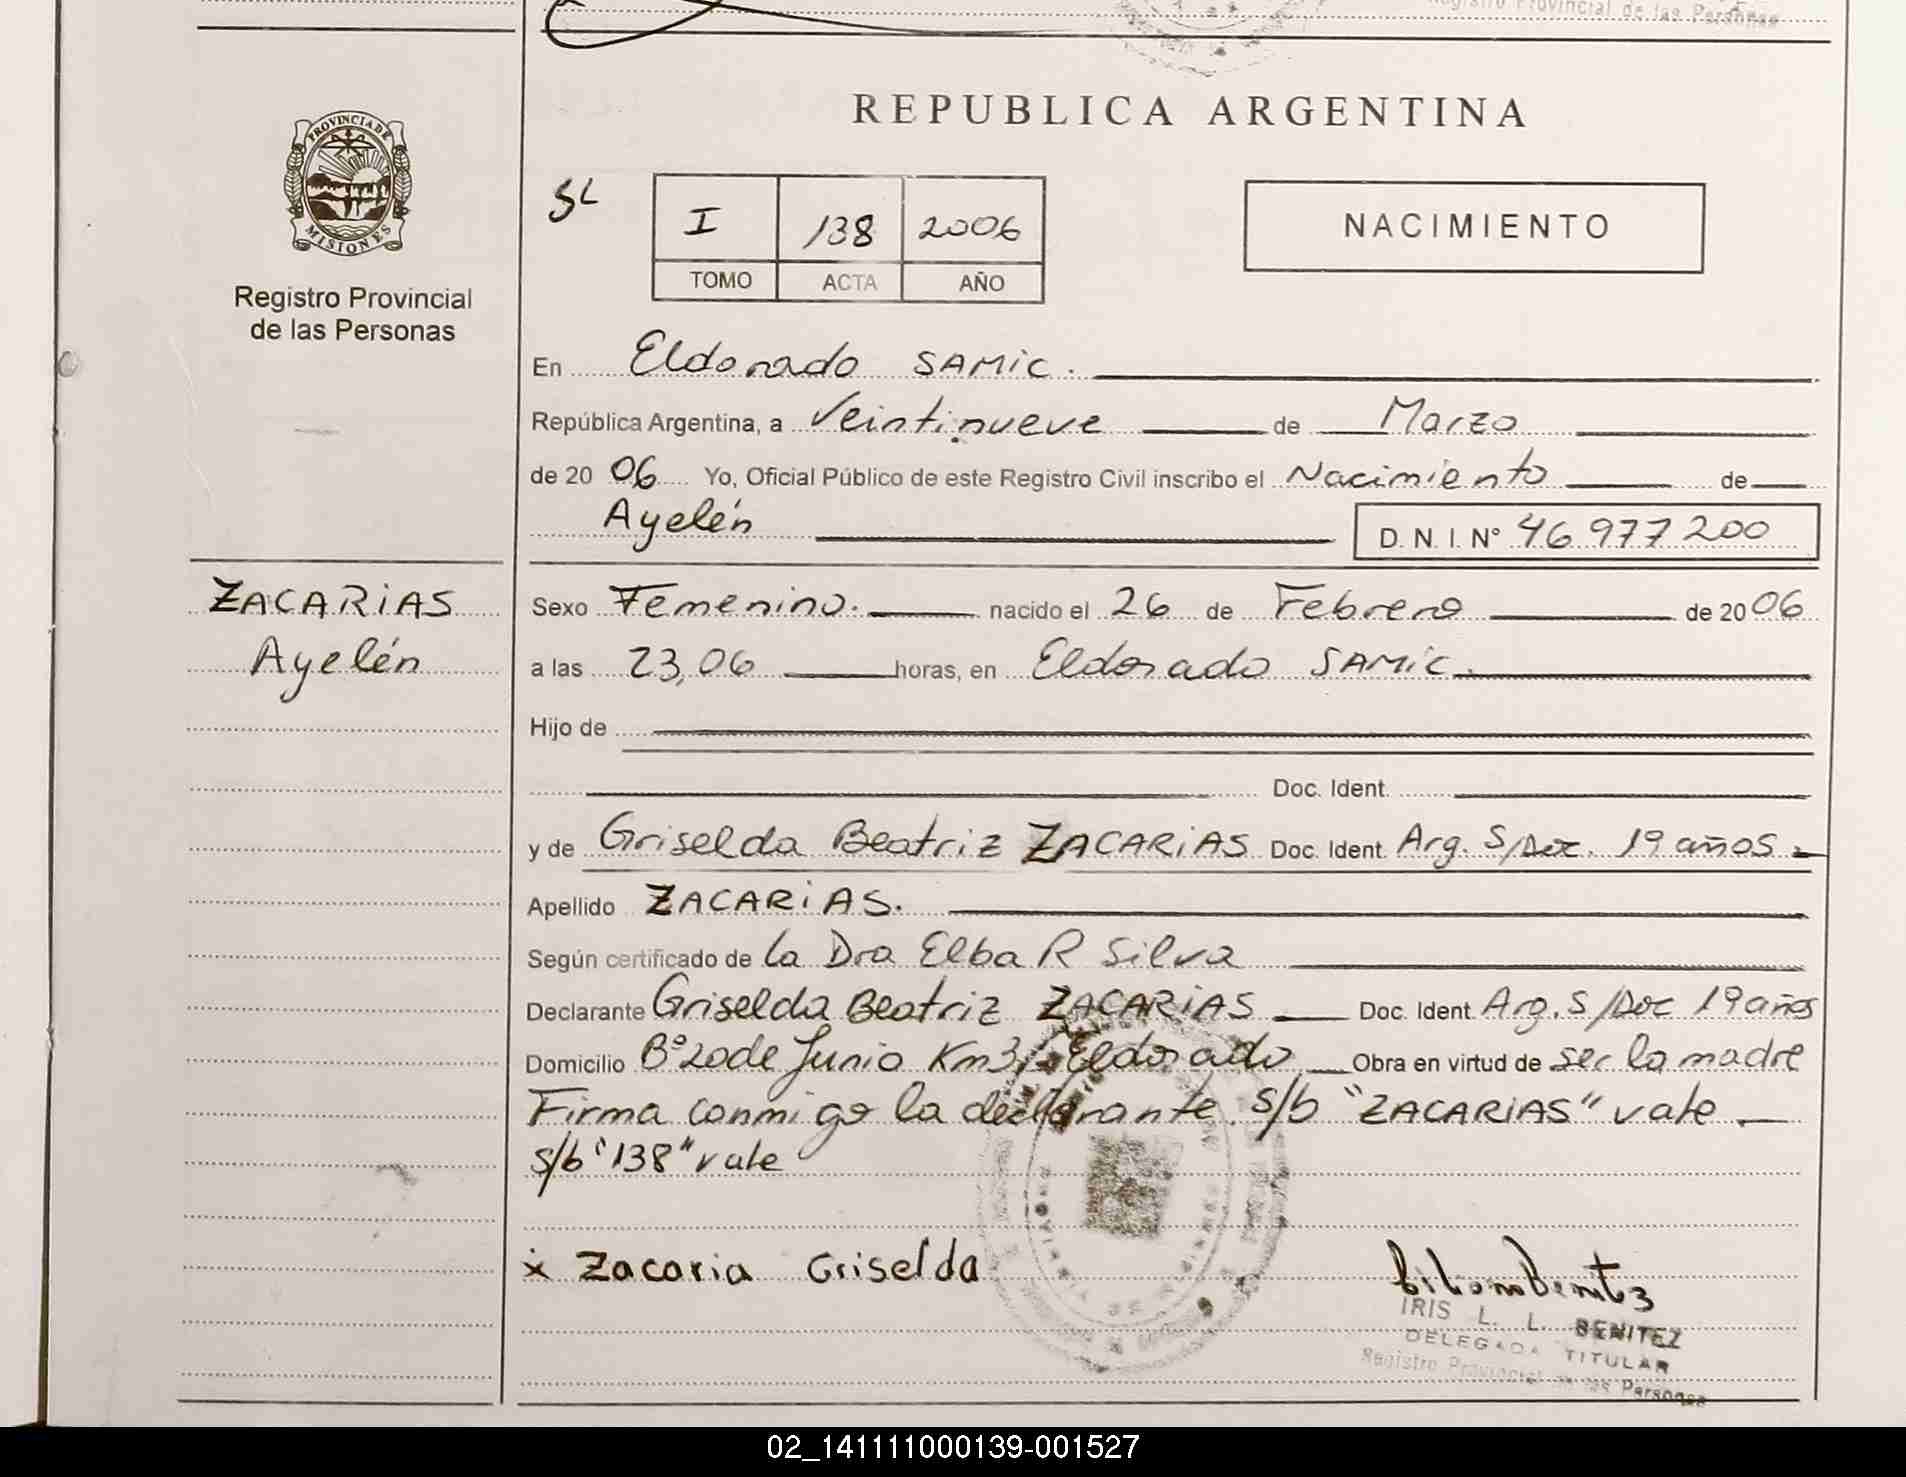 Registro Provincial de las Personas
PROVINCIA DE
MISIONES
Registro Provincial
de las Personas
REPUBLICA ARGENTINA
SL
I 138 2006
TOMO ACTA AÑO
NACIMIENTO
En Eldorado SAMiC.
República Argentina, a Veintinueve de Marzo
de 20 06 Yo, Oficial Público de este Registro Civil inscribo el Nacimiento de
Ayelén D. N. I. N° 46.977.200
ZACARiAS
Ayelén
Sexo Femenino. nacido el 26 de Febrero de 20 06
a las 23,06 horas, en Eldorado SAMiC.
Hijo de
Doc. Ident.
y de Griselda Beatriz ZACARiAS Doc. Ident. Arg. S/Doc. 19 años
Apellido ZACARiAS.
Según certificado de la Dra Elba R Silva
Declarante Griselda Beatriz ZACARiAS Doc. Ident. Arg. S/Doc 19 años
Domicilio B° 20 de Junio Km3, Eldorado Obra en virtud de ser la madre
Firma conmigo la declarante. s/b "ZACARiAS" vale
s/b "138" vale
x Zacaria Griselda
IRIS L. L. BENITEZ
DELEGADA TITULAR
Registro Provincial de las Personas
02_141111000139-001527